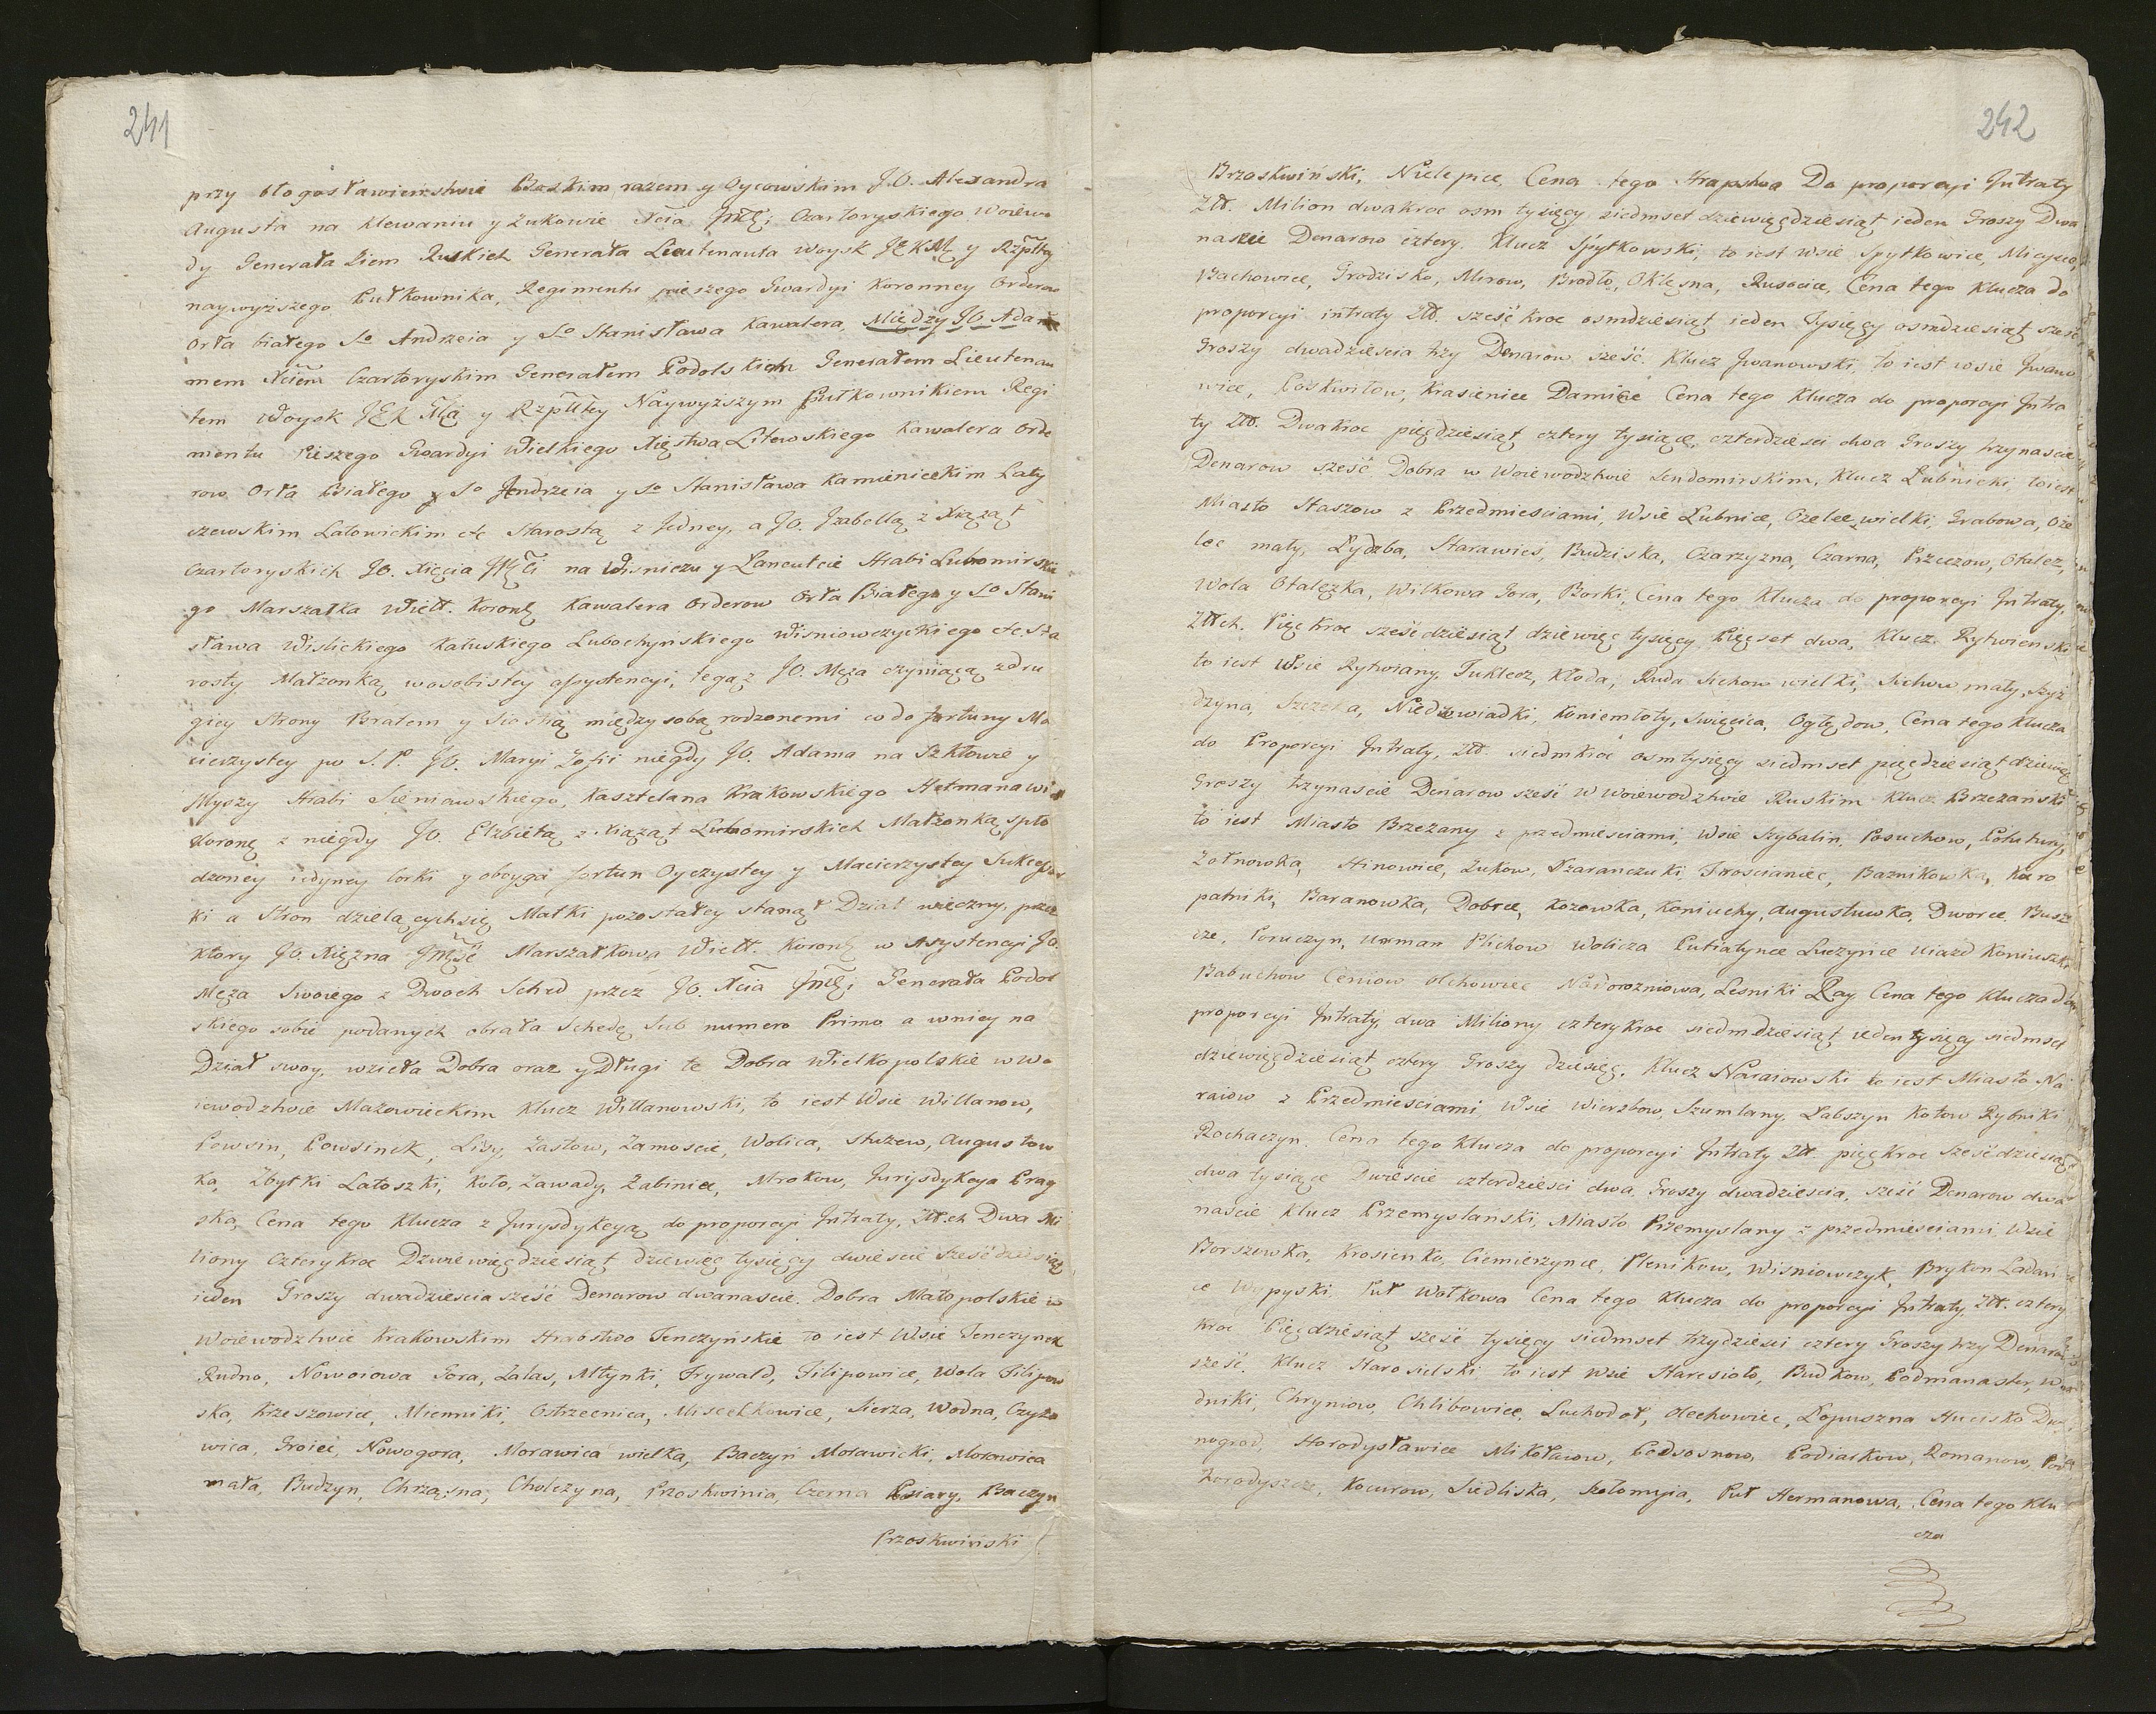 241
przy błogosławienstwie Boskim razem y Oycowskim J.O. Alexandra
Augusta na Klewaniu y Zukowie Xcia Jmci Czartoryskiego Woiewo
dy Generała Ziem Ruskich Generała Lieutenanta Woysk JKM y Rzpltey
naywyższego Pułkownika, Regimentu pieszego Gwardyi Koronney Orderow
Orła białego So Andrzeia y So Stanisława Kawalera, Między JO. Ada
mem Xciem Czartoryskim Generałem Podolskich Generałem Lieutenan
tem Woysk y Rzplltey Naywyższym Pułkownikiem Regi
mentu Pieszego Gwardyi Wielkiego Xięstwa Litewskiego Kawalera Orde
row Orła Białego y So Jendrzeia y So Stanisława Kamienieckim Laty
szewskim Latowickim etc Starostą z Jedney, a JO. Jzabellą z Xiążąt
Czartoryskich JO. Xięcia na Wisniczu y Lancutcie Hrabi Lubomirskie
go Marszałka Wielt. Koronę Kawalera Orderow Orła Białego y So Stani
sława Wislickiego Kałuskiego Lubochynskiego Wisniowczyckiego etc Sta
rosty Małzonką wosobistey assystencyi, tegaz JO. Męza czyniącą zdru
giey Strony Bratem y Siostrą między sobą rodzonemi co do fortuny Ma
cierzystey po S.P. JO. Maryi Zofii niegdy JO. Adama na Szkłowie y
Myszy Hrabi Sieniawskiego, Kasztelana Krakowskiego Hetmana Wi
Koronę z niegdy JO. Elzbietą z Xiążąt Lubomirskich Małzonką spło
dzoney iedyney Corki y oboyga fortun Oyczystey y Macierzystey Sukcessor
ki a Stron dzielących się Matki pozostałey stanął Dział wieczny, przez
ktory JO. Xięzna Marszałkowa Wielt. Koronę w Asystencyi JO
Męza Swoiego z Dwoch Sched przez JO. Xcia Generała Podol
skiego sobie podanych obrała Schedę Sub numero Primo a wniey na
Dział swoy, wzieła Dobra oraz y Długi te Dobra Wielkopolskie w Wo
iewodztwie Mazowieckim Klucz Willanowski, to iest Wsie Willanow,
Powsin, Powsinek, Lisy, Zastow, Zamoscie, Wolica, Służew, Augustow
ka, Zbytki Latoszki, Koło, Zawady, Zabiniec, Mrokow, Jurysdykcya Prag
ska, Cena tego Klucza z Jurysdykcyą do proporcyi Jntraty, Złł.ch Dwa Mi
liony Czterykroc Dziewięcdziesiąt dziewięc tysięcy dwiescie szescdziesiąt
ieden Groszy dwadziescia szesć Denarow dwanascie. Dobra Małopolskie w
Woiewodztwie Krakowskim Hrabstwo Tenczyńskie to iest Wsie Tenczynek
Rudno, Nowoiowa Gora, Zalas, Młynki, Frywald, Filipowice, Wola Filipow
ska, Krzeszowice, Mienniki, Ostrzecnica, Miscekowice, Sierza, Wodna, Czyżo
wica, Groiec, Nowogora, Morawica wielka, Baczyn Morawicki, Morawica
mała, Budzyn, Chrząsna, Cholezyna, Przoskwinia, Czerna Psiary, Baczyn
Przoskwiński
242
Brzoskwiński, Nielepice, Cena tego Hrapstwa Do proporcyi Jntraty
Złł. Milion dwakroc osm tysięcy siedmset dziewięcdziesiąt ieden Groszy Dwa
nascie Denarow cztery. Klucz Spytkowski, to iest Wsie Spytkowice, Mieysce,
Bachowice, Grodzisko, Mirow, Brodło, Oklesna, Rusocice, Cena tego Klucza do
proporcyi intraty Złł. szesćkroc osmdziesiąt ieden Tysięcy osmdziesiąt szesć
Groszy dwadziescia trzy Denarow szesć. Klucz Jwanowski, to iest wsie Jwano
wice, Poskwitow, Krasieniec Damice Cena tego Klucza do proporcyi Jntra
ty Złł. Dwakroc pięcdziesiąt cztery tysiące czterdziesci dwa Groszy trzynascie
Denarow szesć Dobra w Woiewodztwie Sendomirskim, Klucz Lubnicki, toiest
Miasto Staszow z Przedmiesciami, Wsie Lubnice, Ozelec wielki, Grabowa, Oze
lec mały, Łydzba, Starawies, Budziska, Czarzyzna, Czarna, Przeczow, Otalez,
Wola Otalęzka, Wilkowa Gora, Borki, Cena tego Klucza do proporcyi Jntraty,
Złłch. Pięckroc szesćdziesiąt dziewięc tysięcy Pięcset dwa, Klucz Rytwienski
to iest Wsie Rytwiany, Tuklecz, Kłoda, Ruda Sichow wielki, Sichow mały, Szyź
dzyna, Szczeka, Niedzwiadki, Koniemłoty, Swięcica, Oględow, Cena tego Klucza
do Proporcyi Jntraty, Złł. siedmkroc osmtysięcy siedmset pięcdziesiąt dziewięc
Groszy trzynascie Denarow szesć w Woiewodztwie Ruskim Klucz Brzezański
to iest Miasto Brzezany z przedmiesciami, Wsie Szybalin, Posuchow, Potutury,
Zołnowka, Hinowice, Zukow, Szaranczuki, Troscianiec, Baznikowka, Kuro
patniki, Baranowka, Dobrce, Kozowka, Koniuchy, Augustuwka, Dworce, Busz
cze, Poruczyn, Urman Plichow Wolicza Putiatynce Luczynce Uiazd Koniuszki
Babuchow Ceniow Olchowiec Nadorozniowa, Lesniki Ray Cena tego Klucza do
proporcyi Jntraty, dwa Miliony czterykroc siedmdziesiąt ieden tysięcy siedmset
dziewięcdziesiąt cztery Groszy dziesięc. Klucz Naraiowski to iest Miasto Na
raiow z Przedmiesciami, Wsie Wierzbow, Szumlany, Labszyn Kotow Rybniki
Rochaczyn. Cena tego Klucza do proporcyi Jntraty Złł. pięckroc Szesćdziesiąt
dwa tysiące Dwiescie czterdziesci dwa, Groszy dwadziescia, szesć Denarow dwa
nascie Klucz Przemyslański, Miasto Przemyslany z przedmiesciami, Wsie
Borszowka, Krosienko, Ciemierzynce, Plenikow, Wisniowczyk, Brykon Ladań
ce Wypyski, Puł Wołkowa Cena tego Klucza do proporcyi Jntraty, Złł. cztery
kroc Pięcdziesiąt szesć tysięcy siedmset trzydziesci cztery Groszy trzy Denarow
szesć. Klucz Starosielski to iest Wsie Staresioło, Budkow, Podmanaster, Wo
dniki, Chryniow, Chlibowice, Suchodoł, Olechowiec, Lopuszna Hucisko Dwi
nogrod, Horodysławice Mikołaiow, Podsosnow, Podiarkow, Romanow, Pod
horodyszcze, Kocurow, Siedliska, Kołomyia, Puł Hermanowa, Cena tego Klu
cza